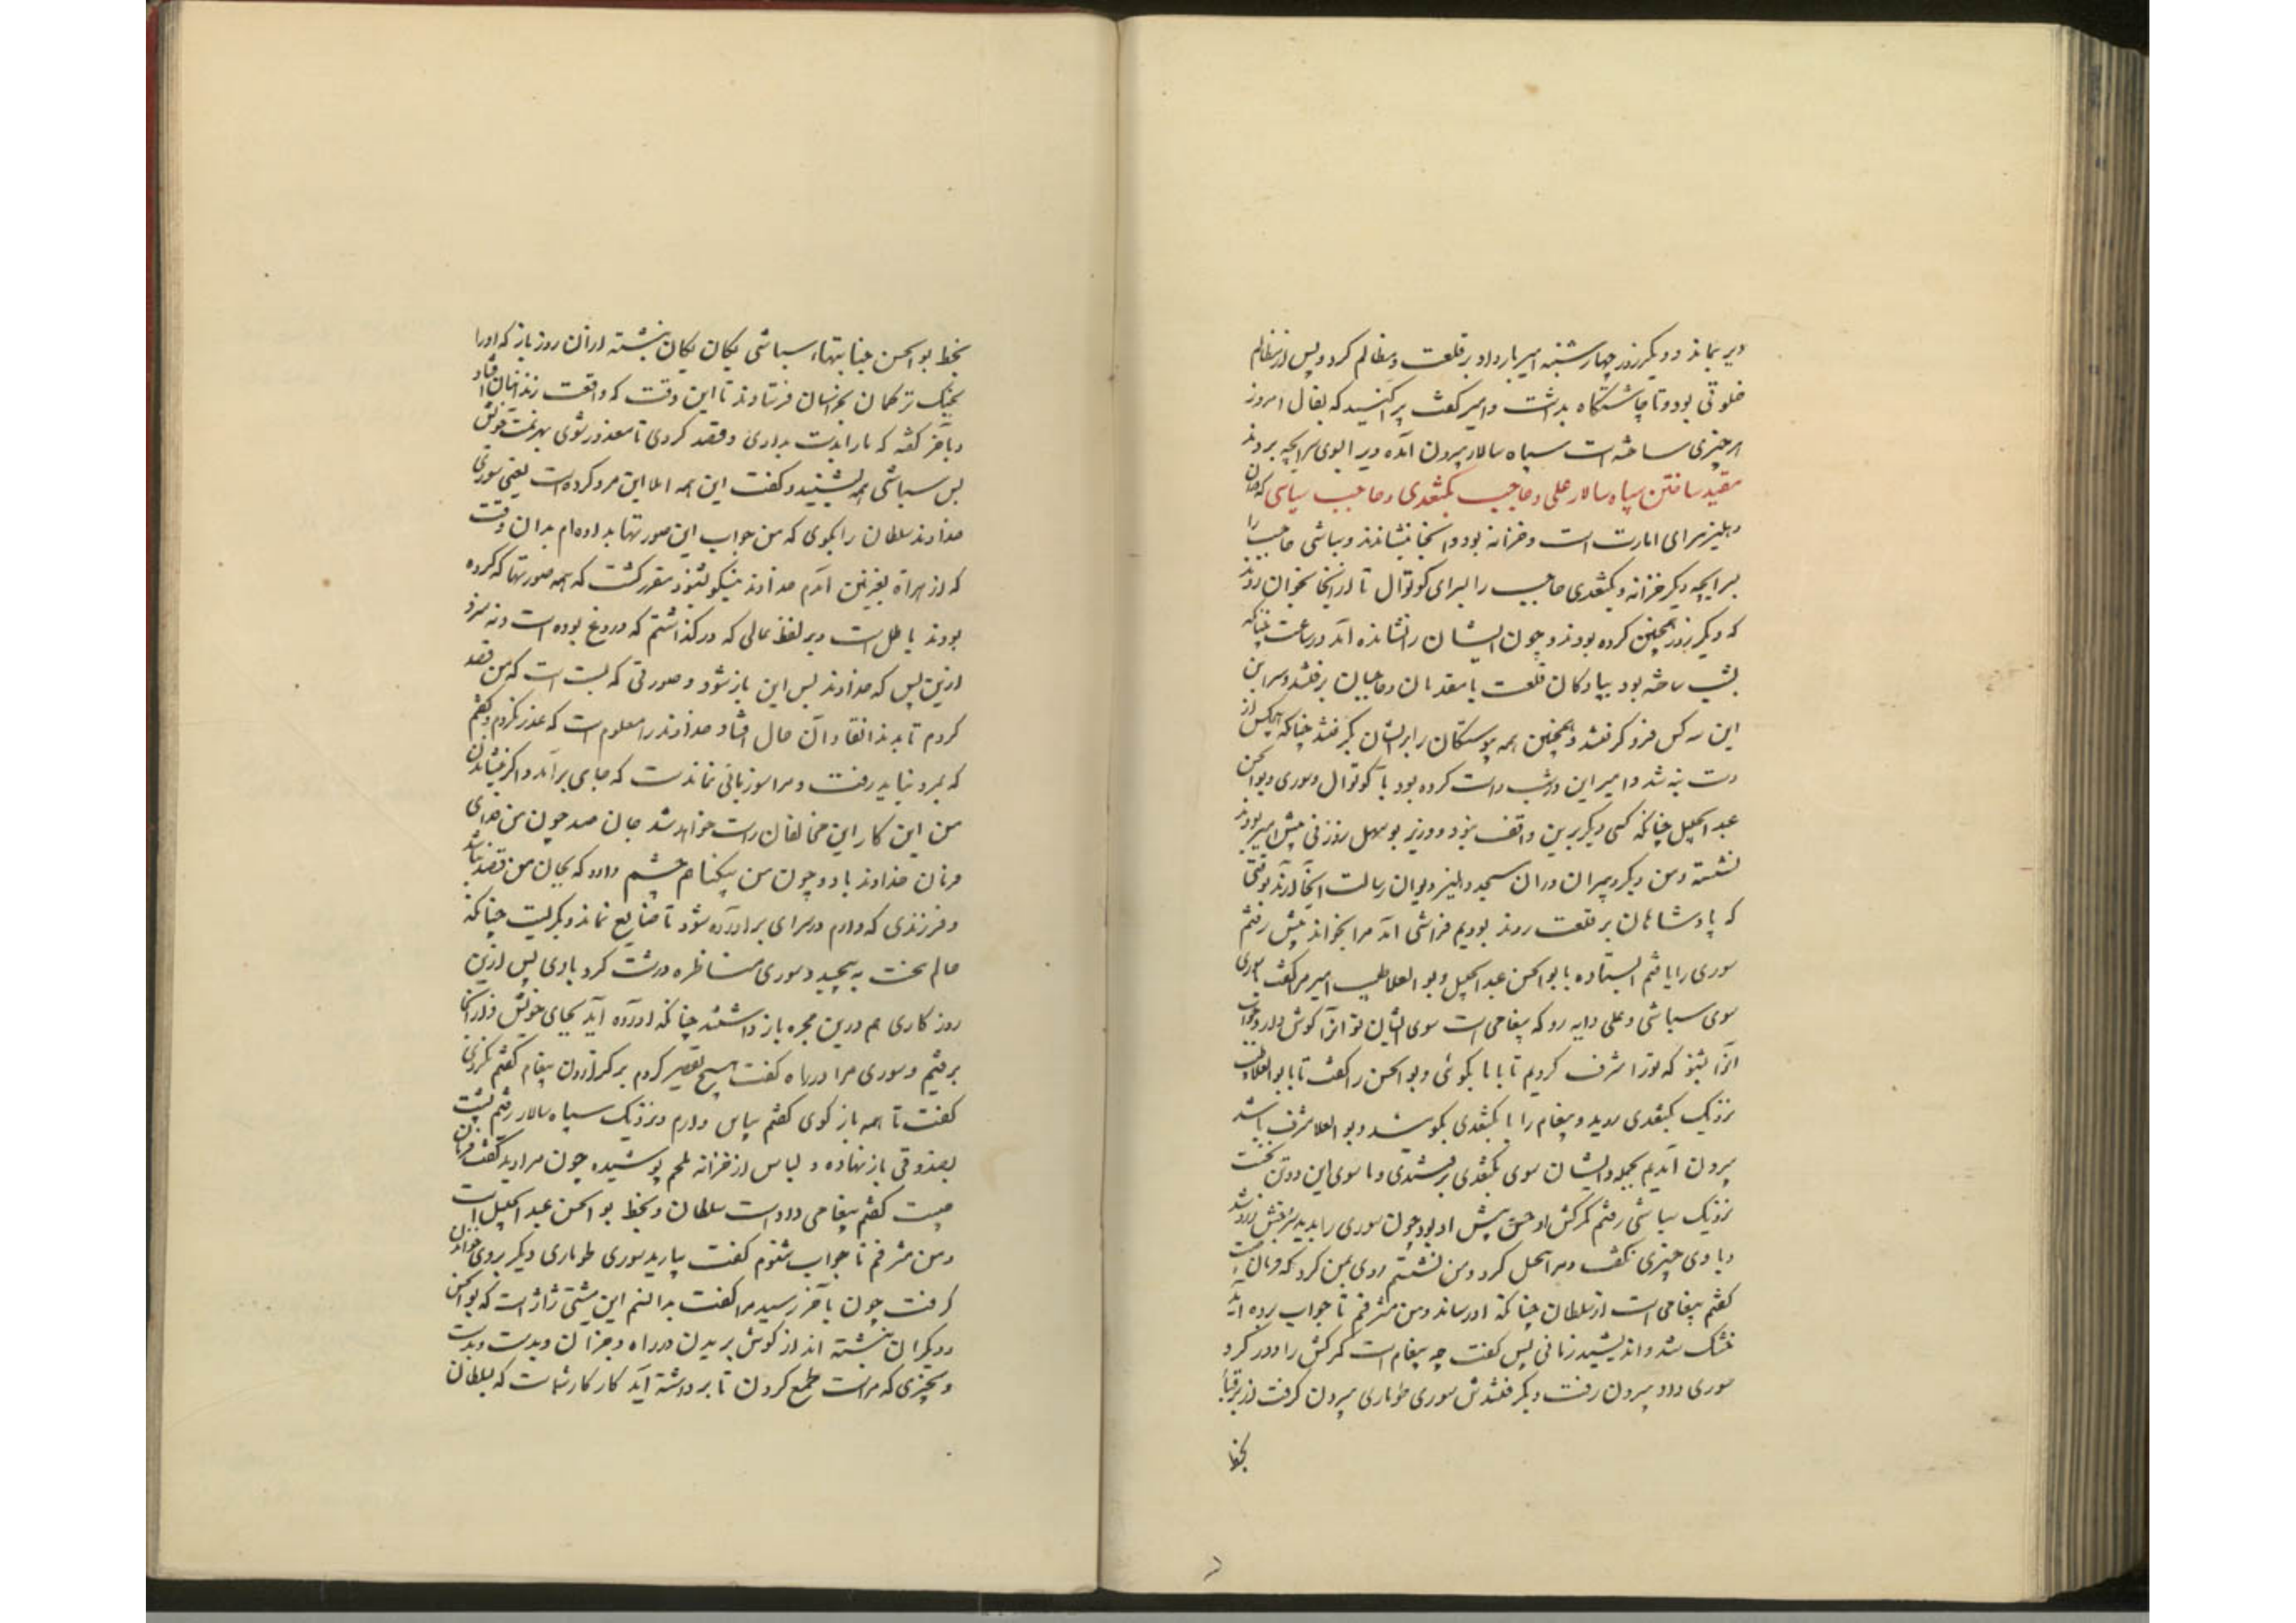 دیر بماند و دیگر روز چهارشنبه امیر بار داد بر قلعت و مظالم کرد و پس از مظالم
خلوتی بود و تا چاشتگاه بداشت و امیر گفت پراکنید که بفال امروز
هر چیزی ساخته است سپاه سالار بیرون آمد ویرا سوی سرایچه بردند
مقید ساختن سپاه سالار علی و حاجب بکتغدی و حاجب سباشی که جان
دهلیز سرای امارت است و خزانه بود و آنجا بنشاندند و سباشی حاجب را
بسرایچه دیگر خزانه و بکتغدی حاجب را بسرای کوتوال تا از آنجا بخوان روند
که دیگر روز همچنین کرده بودند و چون ایشان را نشانده آمد در ساعت چنانکه
بشب ساخته بود پیادگان قلعت با مقدمان و حاجبان برفتند و سرای
این سه کس فرو گرفتند و همچنین همه پیوستگان را برایشان بگرفتند چنانکه هیچکس از
دست بنه شد و امیر این دوش راست کرده بود با کوتوال و سوری و بوالحسن
عبدالجلیل چنانکه کسی دیگر برین واقف نبود و وزیر بوسهل زوزنی پیش امیر بودند
نشسته و من و دیگر دبیران در آن مسجد دهلیز دیوان رسالت آنجا دارند بوقتی
که پادشاهان بر قلعت روند بودیم فراشی آمد مرا بخواند پیش رفتم
سوری را یافتم ایستاده با بوالحسن عبدالجلیل و بوالعلا طبیب امیر مرا گفت با سوری
سوی سباشی و علی دایه رو که پیغامی است سوی ایشان تو آنرا گوش دار و جواب
آنرا بشنو که تو را مشرف کردیم تا با ما بگوئی و بوالحسن را گفت تا با بوالعلا طبیب
نزدیک بکتغدی روید و پیغام را با بکتغدی بگویید و بوالعلا مشرف باشد
بیرون آمدیم بجمله و ایشان سوی بکتغدی برفتندی و ما سوی این دو تن نخست
نزدیک سباشی رفتم کمرکش او حسن پیش او بود چون سوری را بدید سرخیش زرد شد
و با وی چیزی نگفت و مرا بحل کرد و من نشستم روی بمن کرد که فرمان چیست
گفتم پیغامی است از سلطان چنانکه او رساند و من مشرفم تا جواب برده آید
خشک شد و اندیشید زمانی پس گفت چه پیغام است کمرکش را دور کرد
سوری و او بیرون رفت و بگرفتندش سوری طوماری بیرون گرفت از برقبا
بخط
بخط بوالحسن جنایتهاء سباشی یگان یگان نبشته از آن روز باز که او را
بجنگ ترکمان بخراسان فرستادند تا این وقت که واقعت زندانقان افتاد
و بآخر گفته که ما را بدست بدادی و قصد کردی تا معذور شوی بهزیمت خویش
پس سباشی همه بشنید و گفت این همه املا این مرد کرده است یعنی سوری
خداوند سلطان را بگوی که من جواب این صورتها بداده‌ام بدان وقت
که از هراة بغزنین آمدم خداوند نیکو بشنود مقرر گشت که همه صورتها که کرده
بودند باطل است و بر لفظ عالی که درگذاشتم که دروغ بوده است و نه سزد
ازین پس که خداوند پس این باز شود و صورتی که بست است که من قصد
کردم تا بدندانقان آن حال افتاد خداوند را معلوم است که غدر نکردم و گفتم
که بمرو نباید رفت و مرا سوزیانی نماندست که جای برآمد و اگر بنشاندن
من این کار این مخالفان راست خواهد شد جان صد چون من فدای
فرمان خداوند باد و چون من بیگناهم چشم دارد که بجان من قصد نباشد
و فرزندی که دارم در سرای برآورده شود تا ضایع نماند و بگریست چنانکه
حالم سخت به پیچید و سوری مناظره درشت کرد با وی پس ازین
روزگاری هم درین حجره باز داشتند چنانکه آورده آید بجای خویش و از آنجا
برفتیم و سوری مرا در راه گفت هیچ تقصیر کردم بر گزاردن پیغام گفتم نکردی
گفت تا همه باز گوی گفتم سپاس دارم و نزدیک سپاه سالار رفتم پشت
بصندوقی باز نهاده و لباس از خزانه ملحم پوشیده چون مرا دید گفت فرمان
چیست گفتم پیغامی داده است سلطان و بخط بوالحسن عبدالجلیل است
و من مشرفم تا جواب شنوم گفت بیارید سوری طوماری دیگر بر وی خواندن
گرفت چون بآخر رسید مرا گفت بدانم این مشتی ژاژ است که بوالحسن
و دیگران نبشته‌اند از گوش بریدن در راه و جزآن و بدست و بدست
و بچیزی که مراست طمع کردن تا برداشته آید کار کار شماست که بسلطان